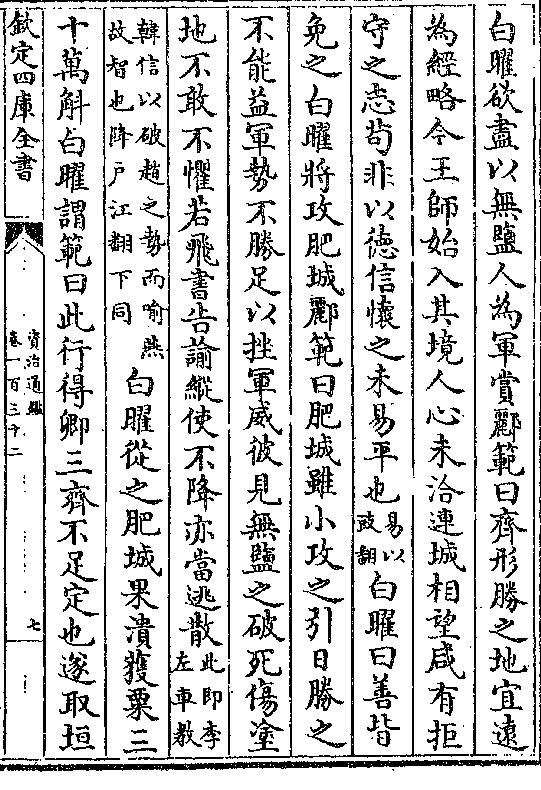 白曜欲盡以無鹽人為軍賞酈範曰齊形勝之地宜遠
為經略今王師始入其境人心未洽連城相望咸有拒
守之志苟非以徳信懷之未易平也易以豉翻白曜曰善皆
免之白曜將攻肥城酈範曰肥城雖小攻之引日勝之
不能益軍勢不勝足以挫軍威彼見無鹽之破死傷塗
地不敢不懼若飛書告諭縱使不降亦當逃散此即李左車教
韓信以破趙之勢而喻燕故智也降戸江翻下同白曜從之肥城果潰獲粟三
十萬斛白曜謂範曰此行得卿三齊不足定也遂取垣
欽定四庫全書
資治通鑑
卷一百三十二
七